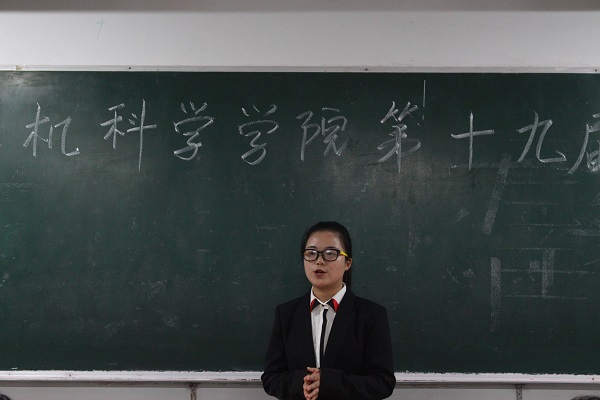 机科学学院第十九届